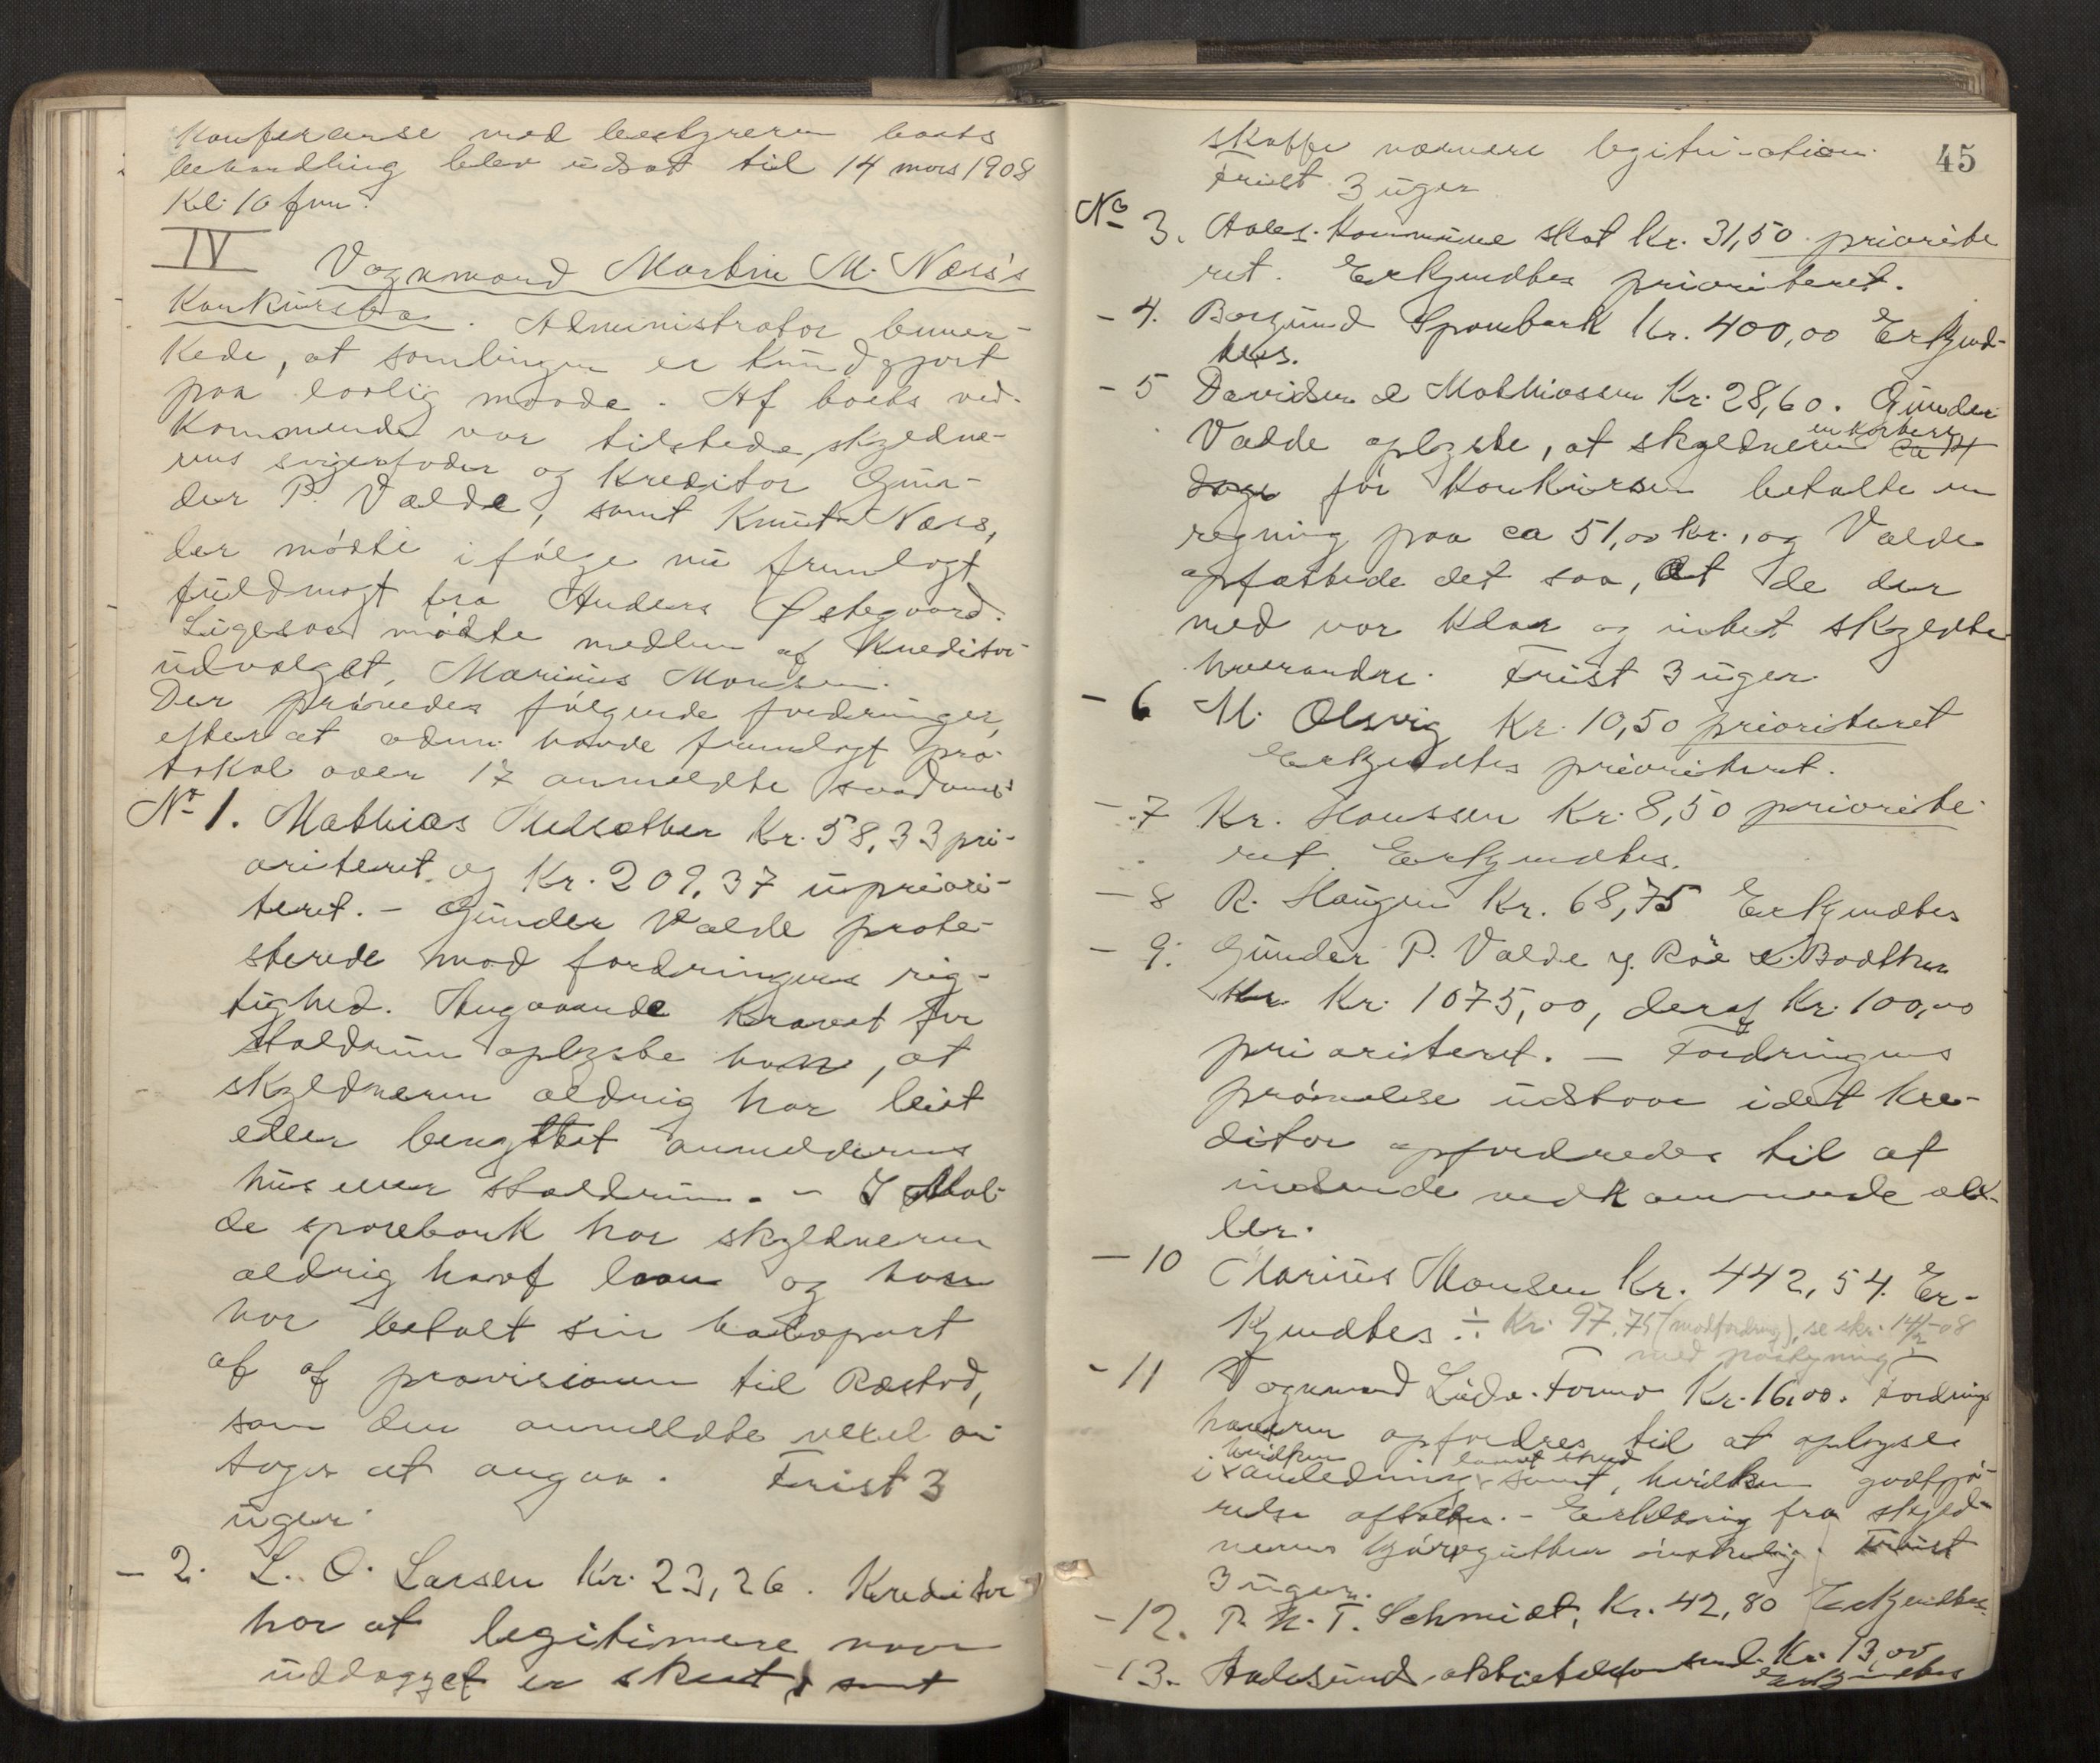 Konferanse med bestyreren boets
behandling blev udsat til 14 mars 1908
Kl. 10 fm.
IV
Vognmand Martin M. Næss's
Konkursbo. Administrator bemær-
kede, at samlingen er kundgjort
paa lovlig maade. Af boets ved-
kommende var tilstede skyldne-
rens svigerfader og kreditor Gun-
der P. Valde, samt Knut Næss,
der mødte ifølge nu fremlagt
fuldmagt fra Anders Østegaard.
Ligesaa mødte medlem af kreditor-
udvalget, Marius Monsen.
Der prøvedes følgende fordringer,
efter at adm. havde fremlagt pro-
tokol over 17 anmeldte
No 1. Mathias Helsæther Kr. 58,33 pri-
oriteret og Kr. 209,37 uprior-
teret. - Gunder Valde prote-
sterede mod fordringens rig-
tighed. Angaaende kravet for
staldrum oplyste han, at
skyldneren aldrig har leiet
eller benyttet anmelderens
hus eller staldrum. - I Mol-
de sparebank har skyldneren
aldrig havt laan og han
har betalt sin halvpart
af af provisionen til Ræstad,
som den anmeldte vexel an-
tages at angaa. Frist 3
uger.
- 2. L. O. Larsen Kr. 23,26. Kreditor
har at legitimere naar
udlægget er skeet, samt
45
skaffe nærmere legitimation.
Frist 3 uger
No 3. Aales. Kommune skat Kr. 31,50 priorite
ret. Erkjendtes prioriteret.
- 4. Borgund Sparebank Kr. 400,00 Erkjend-
tes.
- 5 Davidsen & Mathiassen Kr. 28,60. Gunder
en kortere
Valde oplyste, at skyldneren ca 14
dage før konkursen betalte en
regning paa ca 51,00 kr., og Valde
opfattede det saa, at de der
med var klar og intet skyldte
hverandre. Frist 3 uger.
- 6 M. Olsvig Kr. 10,50 prioriteret
Erkjendtes prioriteret.
- 7 Kr. Hanssen Kr. 8,50 priorite
ret. Erkjendtes.
- 8 R. Haugen Kr. 68,75 Erkjendtes
- 9. Gunder P. Valde
Kr. 1075,00, deraf Kr. 100,00
prioriteret. - Fordringens
prøvelse udstaar idet kre-
ditor opfordredes til at
indsende vedkommende
- 10 Marius Monsen Kr. 442,54. Er-
kjendtes ÷ Kr. 97,75 (modfordring), se skr. 14/2-08
med paategning
- 11 Vognmand Kr. 16,00. Fordrings
haveren opfordres til at oplyse
hvilken laanet skeed
i anledning samt, hvilken godtgjø-
relse aftaltes. - Erklæring fra skyld-
nerens kjøregutter ønskelig. Frist
3 uger.
- 12. P. H. T. Schmidt, Kr. 42,80 Erkjendtes.
- 13. Aalesunds aktietelefonselsk. Kr. 13,00
Erkjendtes